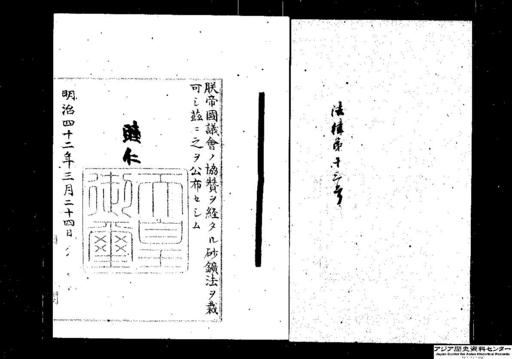 法律第十三号
朕帝國議會ノ協賛ヲ経タル砂鑛法ヲ裁
可シ茲ニ之ヲ公布セシム
睦仁
天皇御璽
明治四十二年三月二十四日
アジア歴史資料センター
Japan Center for Asian Historical Records